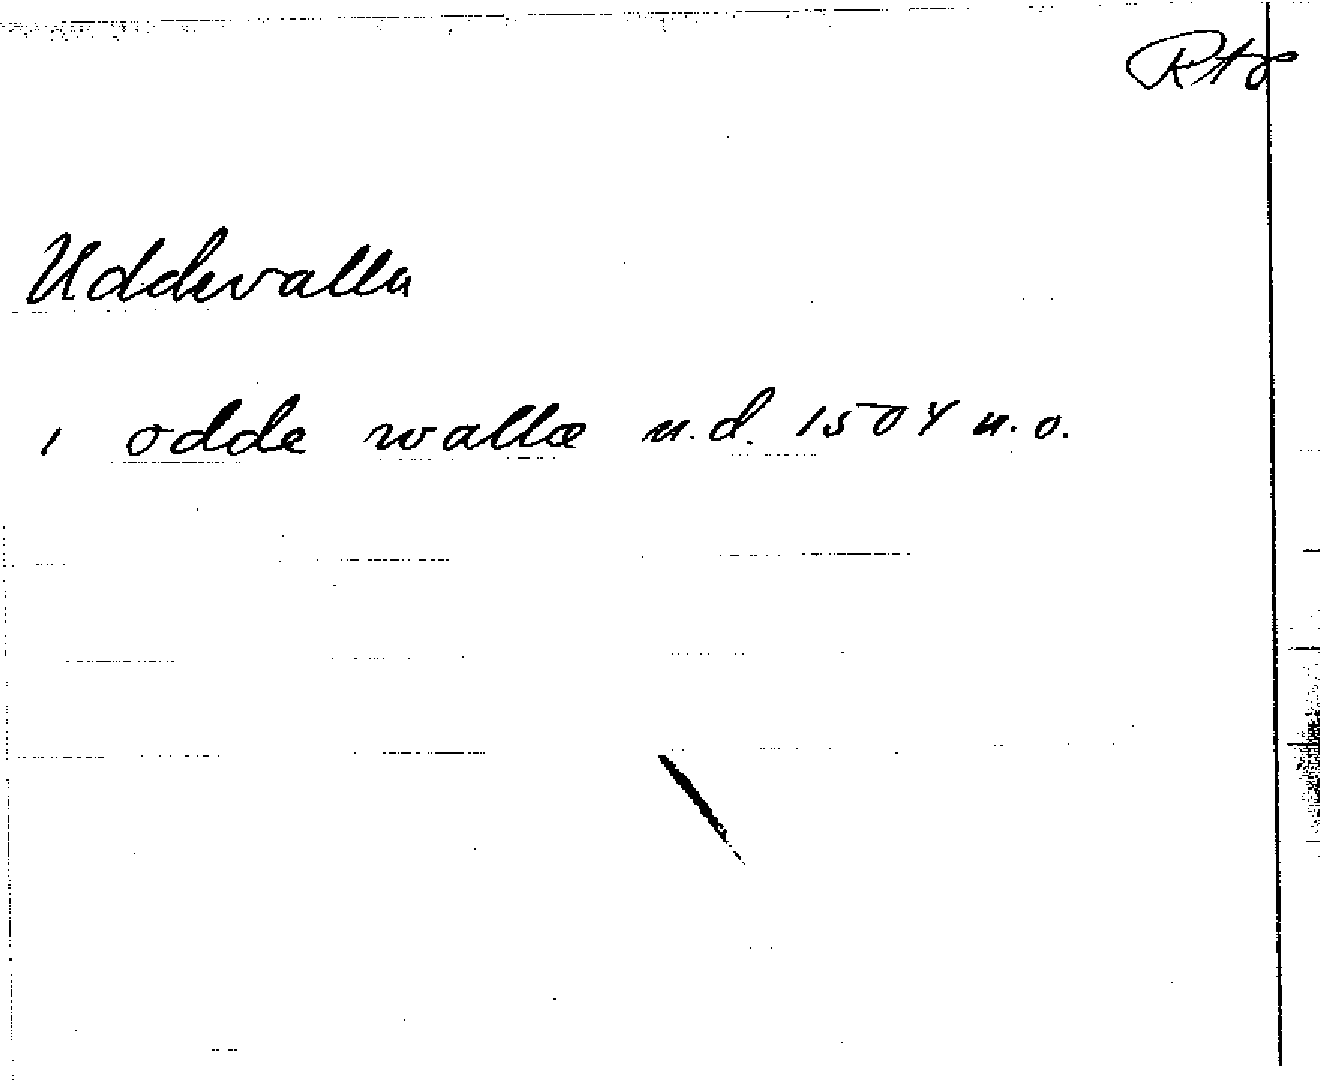 Rto
Uddevalla
i odde walle u.d. 1504 u.o.